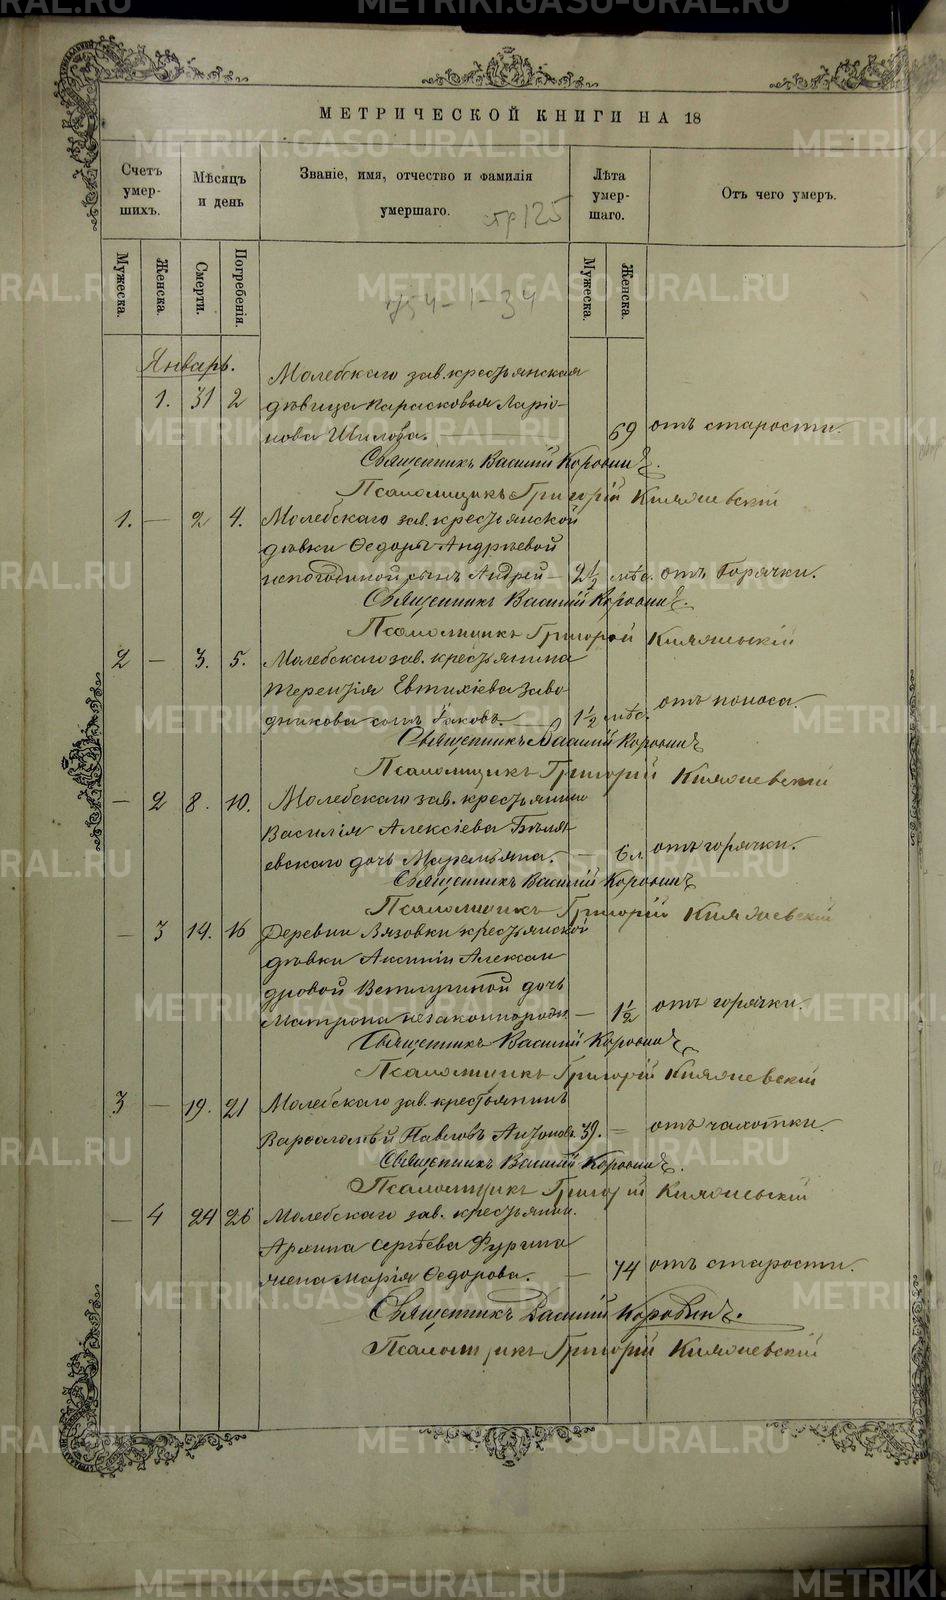 METRIKI.GASO-URAL.RU
МЕТРИЧЕСКОЙ КНИГИ НА 18
Счетъ умершихъ.
Мѣсяцъ и день
Званіе, имя, отчество и фамилія умершаго.
стр 125
Лѣта умершаго.
Отъ чего умеръ.
Мужеска.
Женска.
Смерти.
Погребенія.
Мужеска.
Женска.
754-1-34
Январь.
Молебскаго зав. крестьянская
1. 31 2 дѣвица Парасковья Ларіо-
нова Шилова. 69 отъ старости.
Священникъ Василій Коровинъ.
Псаломщикъ Григорій
1. — 2 4. Молебскаго зав. крестьянской
дѣвки Ѳедоры Андрѣевой
сынъ Андрей — 2 1/2 мѣс. отъ горячки.
Священникъ Василій Коровинъ.
Псаломщикъ Григорій
2 — 3. 5. Молебскаго зав. крестьянина
Терентія Евтихіева Заво-
дчикова сынъ Іаковъ. — 1 1/2 мѣс. отъ поноса.
Священникъ Василій Коровинъ
Псаломщикъ Григорій
— 2 8. 10. Молебскаго зав. крестьянина
Василія Алексіева Бѣля-
евскаго дочь Маремьяна. — 6 л. отъ горячки.
Священникъ Василій Коровинъ
Псаломщикъ Григорій
— 3 14. 16 Деревни Вязовки крестьянской
дѣвки Аксиніи Алексан-
дровой Ветлугиной дочь
Матрона незаконнорожд. — 1 1/2 отъ горячки.
Священникъ Василій Коровинъ
Псаломщикъ Григорій
3 — 19. 21 Молебскаго зав. крестьянинъ
Варѳоломѣй Павловъ 39. — отъ чахотки.
Священникъ Василій Коровинъ.
Псаломщикъ Григорій
— 4 24 26 Молебскаго зав. крестьянин.
Архипа Сергѣева Фурина
жена Марія Ѳедорова. — 74 отъ старости.
Священникъ Василій Коровинъ.
Псаломщикъ Григорій